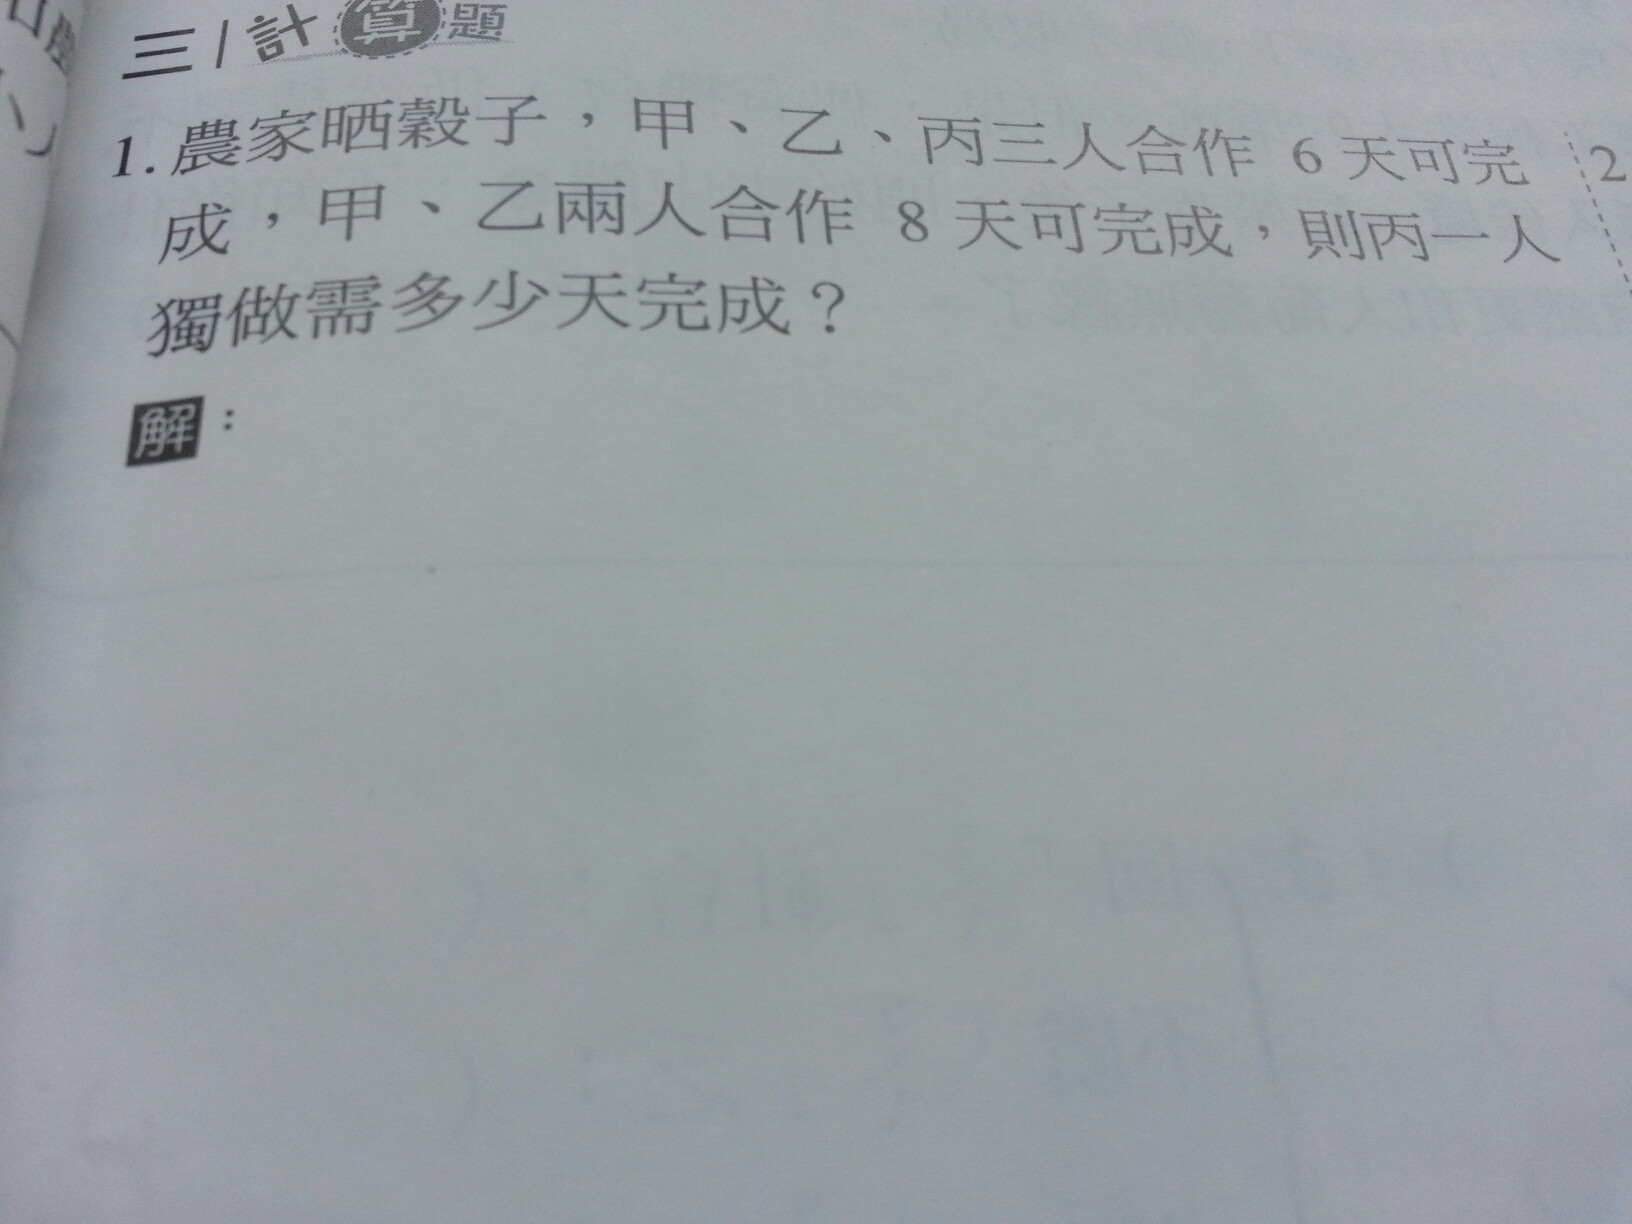 三/計算題
1. 農家晒穀子，甲、乙、丙三人合作 6 天可完
成，甲、乙兩人合作 8 天可完成，則丙一人
獨做需多少天完成？
解：
2